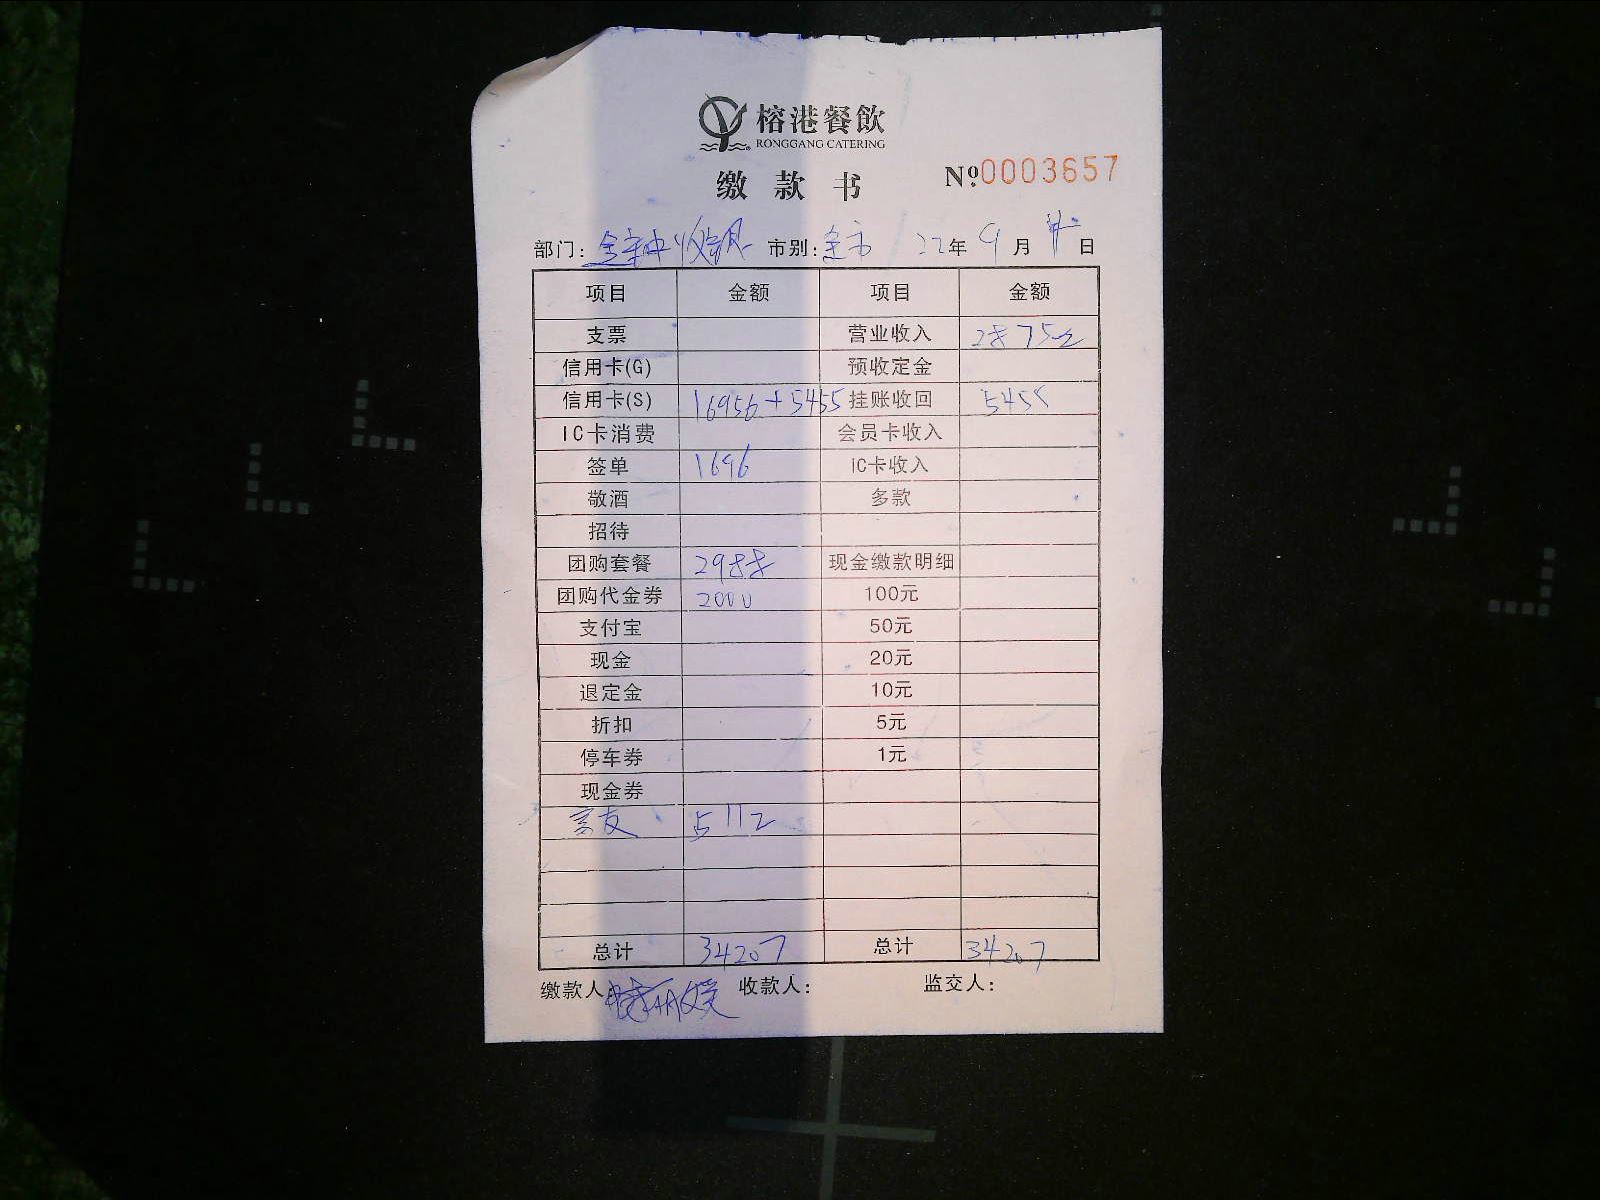 榕港餐飲
RONGGANG CATERING
缴款书 No.0003657
部门: 市别:全市 22年9月 日
项目 金额 项目 金额
支票 营业收入 28752
信用卡(G) 预收定金
信用卡(S) 16956+5455 挂账收回 5455
IC卡消费 会员卡收入
签单 1696 IC卡收入
敬酒 多款
招待
团购套餐 2988 现金缴款明细
团购代金券 2000 100元
支付宝 50元
现金 20元
退定金 10元
折扣 5元
停车券 1元
现金券
5112
总计 34207 总计 34207
缴款人: 收款人: 监交人: